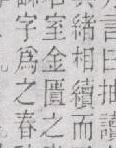 言曰抽讀
緒相續而
室金匱之
字爲之春